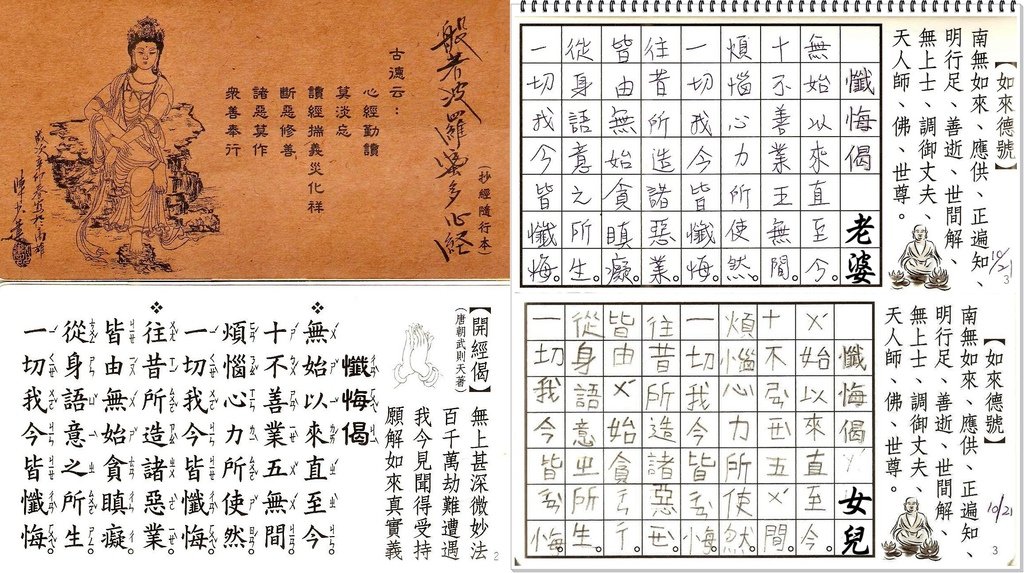 般若波羅蜜多心經
(抄經隨行本)
古德云：
心經勤讀
莫淡忘
讀經揣義災化祥
斷惡修善
諸惡莫作
眾善奉行
【開經偈】
(唐朝武則天著)
無上甚深微妙法
百千萬劫難遭遇
我今見聞得受持
願解如來真實義
懺悔偈
❖無始以來直至今。
十不善業五無間。
煩惱心力所使然。
一切我今皆懺悔。
❖往昔所造諸惡業。
皆由無始貪瞋癡。
從身語意之所生。
一切我今皆懺悔。
2
【如來德號】
南無如來、應供、正遍知、
明行足、善逝、世間解、
無上士、調御丈夫、
天人師、佛、世尊。
10/21
3
懺悔偈 老婆
無始以來直至今。
十不善業五無間。
煩惱心力所使然。
一切我今皆懺悔。
往昔所造諸惡業。
皆由無始貪瞋癡。
從身語意之所生。
一切我今皆懺悔。
【如來德號】
南無如來、應供、正遍知、
明行足、善逝、世間解、
無上士、調御丈夫、
天人師、佛、世尊。
10/21
3
懺悔偈 女兒
ㄨˊ始以來直至今。
十不五ㄨˊ間。
煩惱心力所使然。
一切我今皆悔。
往昔所造諸惡。
皆由ㄨˊ始貪
從身語意ㄓ所生。
一切我今皆悔。